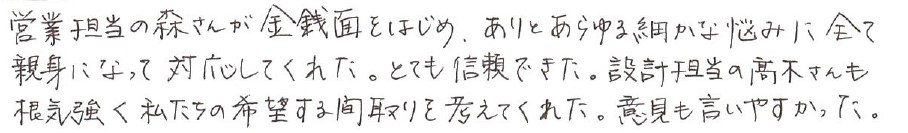 営業担当の森さんが金銭面をはじめ、ありとあらゆる細かな悩みに全て
親身になって対応してくれた。とても信頼できた。設計担当の髙木さんも
根気強く私たちの希望する間取りを考えてくれた。意見も言いやすかった。